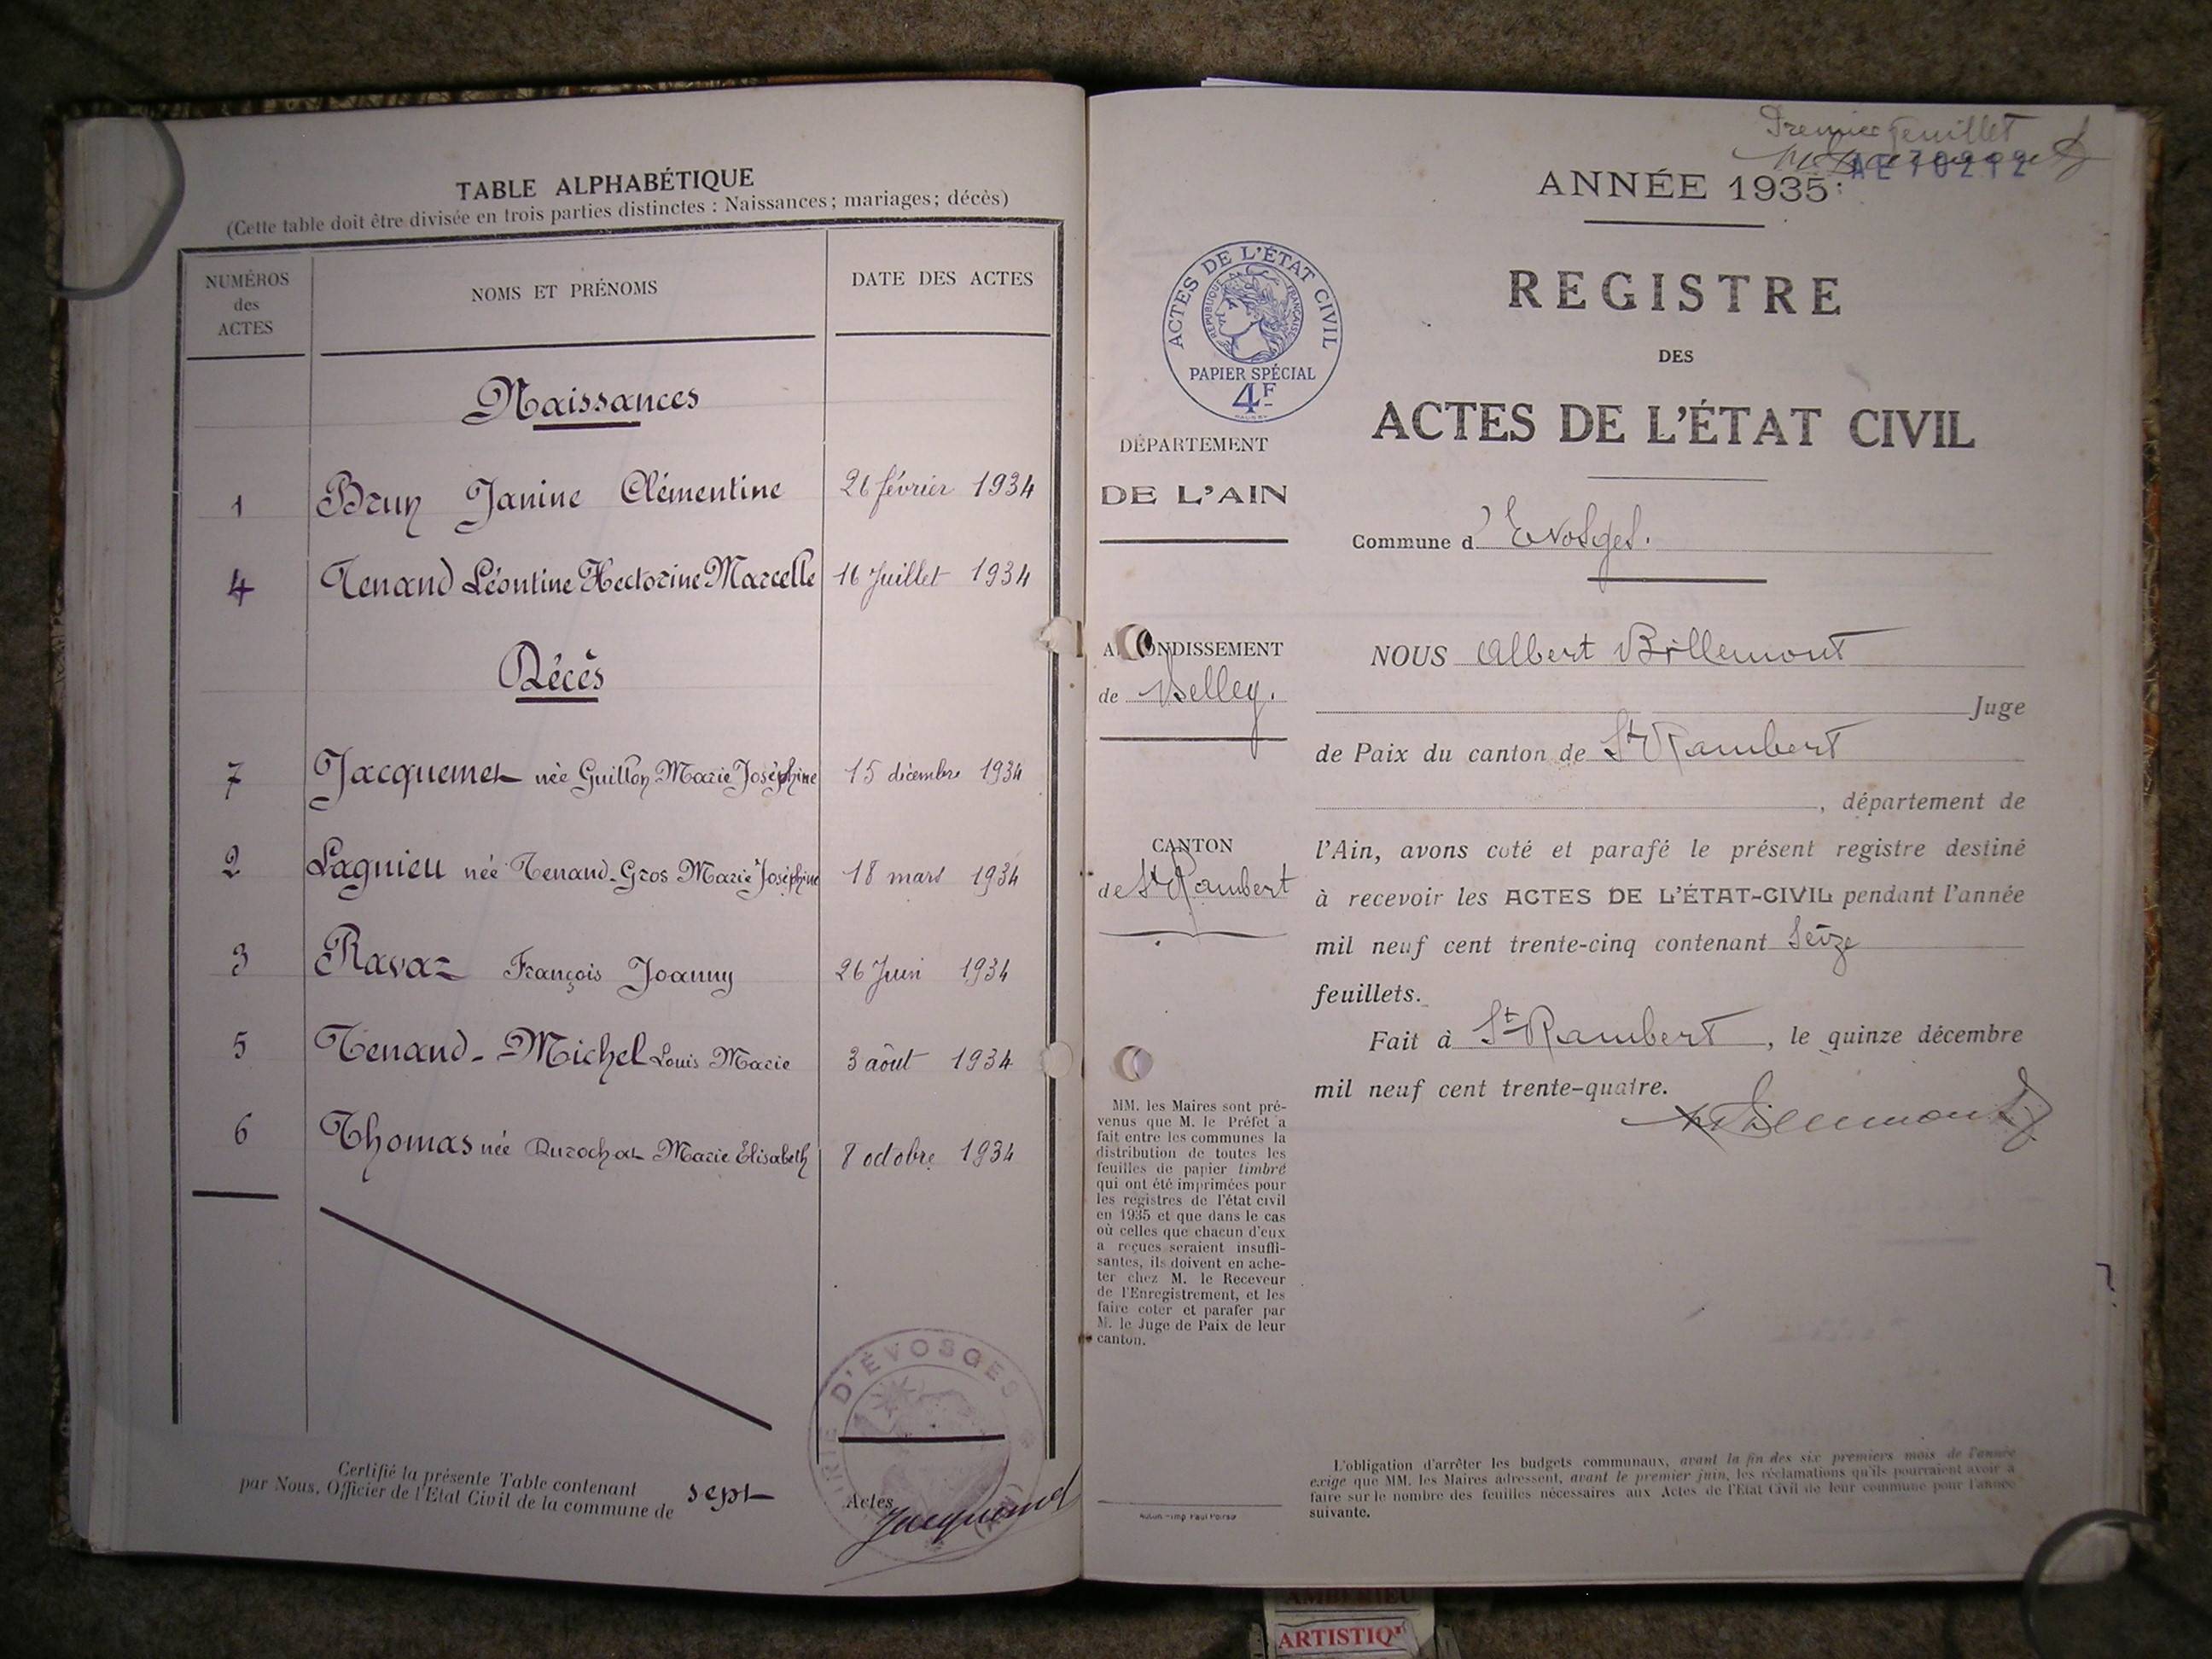 TABLE ALPHABÉTIQUE
(Cette table doit être divisée en trois parties distinctes : Naissances ; mariages ; décès)
NUMÉROS des ACTES
NOMS ET PRÉNOMS
DATE DES ACTES
Naissances
1 Brun Janine Clémentine 26 février 1934
4 Tenand Léontine Hectorine Marcelle 16 Juillet 1934
Décès
7 Jacquemet née Guillon Marie Joséphine 15 décembre 1934
2 Lagnieu née Tenand-Gros Marie Joséphine 18 mars 1934
3 Ravaz François Joanny 26 Juin 1934
5 Tenand-Michel Louis Marie 3 aôut 1934
6 Thomas née Durochat Marie Elisabeth 8 octobre 1934
Certifié la présente Table contenant sept Actes
par Nous, Officier de l'Etat Civil de la commune de
D'ÉVOSGES
Jacquemet
Premier feuillet
AE 70212
ANNÉE 1935
ACTES DE L'ÉTAT CIVIL
RÉPUBLIQUE FRANÇAISE
PAPIER SPÉCIAL
4F
REGISTRE
DES
ACTES DE L'ÉTAT CIVIL
DÉPARTEMENT
DE L'AIN
Commune d'Evosges.
ONDISSEMENT
de Belley.
CANTON
de St Rambert
NOUS Albert Billemont
Juge
de Paix du canton de St Rambert
, département de
l'Ain, avons coté et parafé le présent registre destiné
à recevoir les ACTES DE L'ÉTAT-CIVIL pendant l'année
mil neuf cent trente-cinq contenant seize
feuillets.
Fait à St Rambert, le quinze décembre
mil neuf cent trente-quatre.
MM. les Maires sont pré-
venus que M. le Préfet a
fait entre les communes la
distribution de toutes les
feuilles de papier timbré
qui ont été imprimées pour
les registres de l'état civil
en 1935 et que dans le cas
où celles que chacun d'eux
a reçues seraient insuffi-
santes, ils doivent en ache-
ter chez M. le Receveur
de l'Enregistrement, et les
faire coter et parafer par
M. le Juge de Paix de leur
canton.
L'obligation d'arrêter les budgets communaux, avant la fin des six premiers mois de l'année
exige que MM. les Maires adressent, avant le premier juin, les réclamations qu'ils pourraient avoir à
faire sur le nombre des feuilles nécessaires aux Actes de l'Etat Civil de leur commune pour l'année
suivante.
AMBERIEU
ARTISTIQ